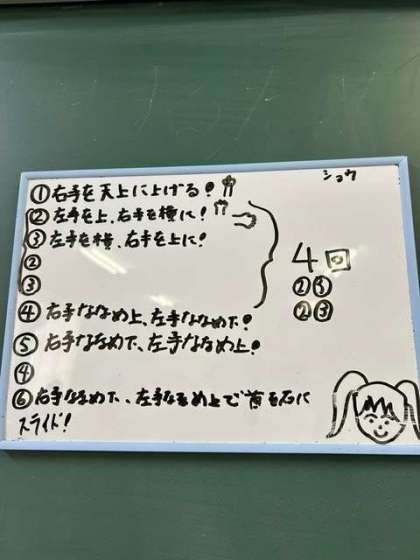 ショウ
①右手を天上に上げる!
②左手を上、右手を横に!
③左手を横、右手を上に!
②
③
④右手ななめ上、左手ななめ下!
⑤右手ななめ下、左手ななめ上!
④
⑥右手ななめ下、左手ななめ上で首を右に
スライド!
4回
②③
②③